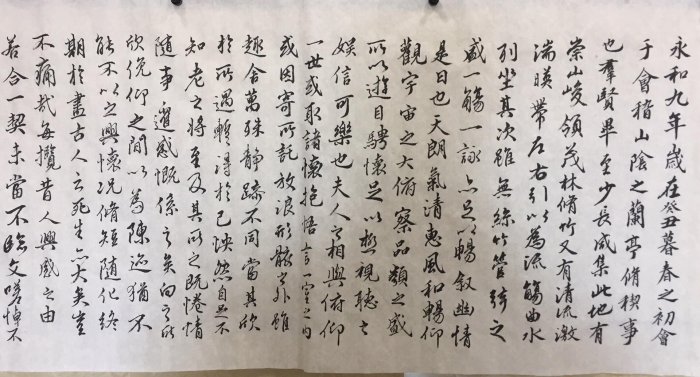 永和九年歲在癸丑暮春之初會
于會稽山陰之蘭亭脩稧事
也羣賢畢至少長咸集此地有
崇山峻領茂林脩竹又有清流激
湍暎帶左右引以為流觴曲水
列坐其次雖無絲竹管弦之
盛一觴一詠亦足以暢叙幽情
是日也天朗氣清惠風和暢仰
觀宇宙之大俯察品類之盛
所以遊目騁懷足以極視聽之
娛信可樂也夫人之相與俯仰
一世或取諸懷抱悟言一室之內
或因寄所託放浪形骸之外雖
趣舍萬殊静躁不同當其欣
於所遇暫得於己怏然自足不
知老之將至及其所之既惓情
隨事遷感慨係之矣向之所
欣俛仰之間以為陳迹猶不
能不以之興懷況脩短隨化終
期於盡古人云死生亦大矣豈
不痛哉每攬昔人興感之由
若合一契未嘗不臨文嗟悼不